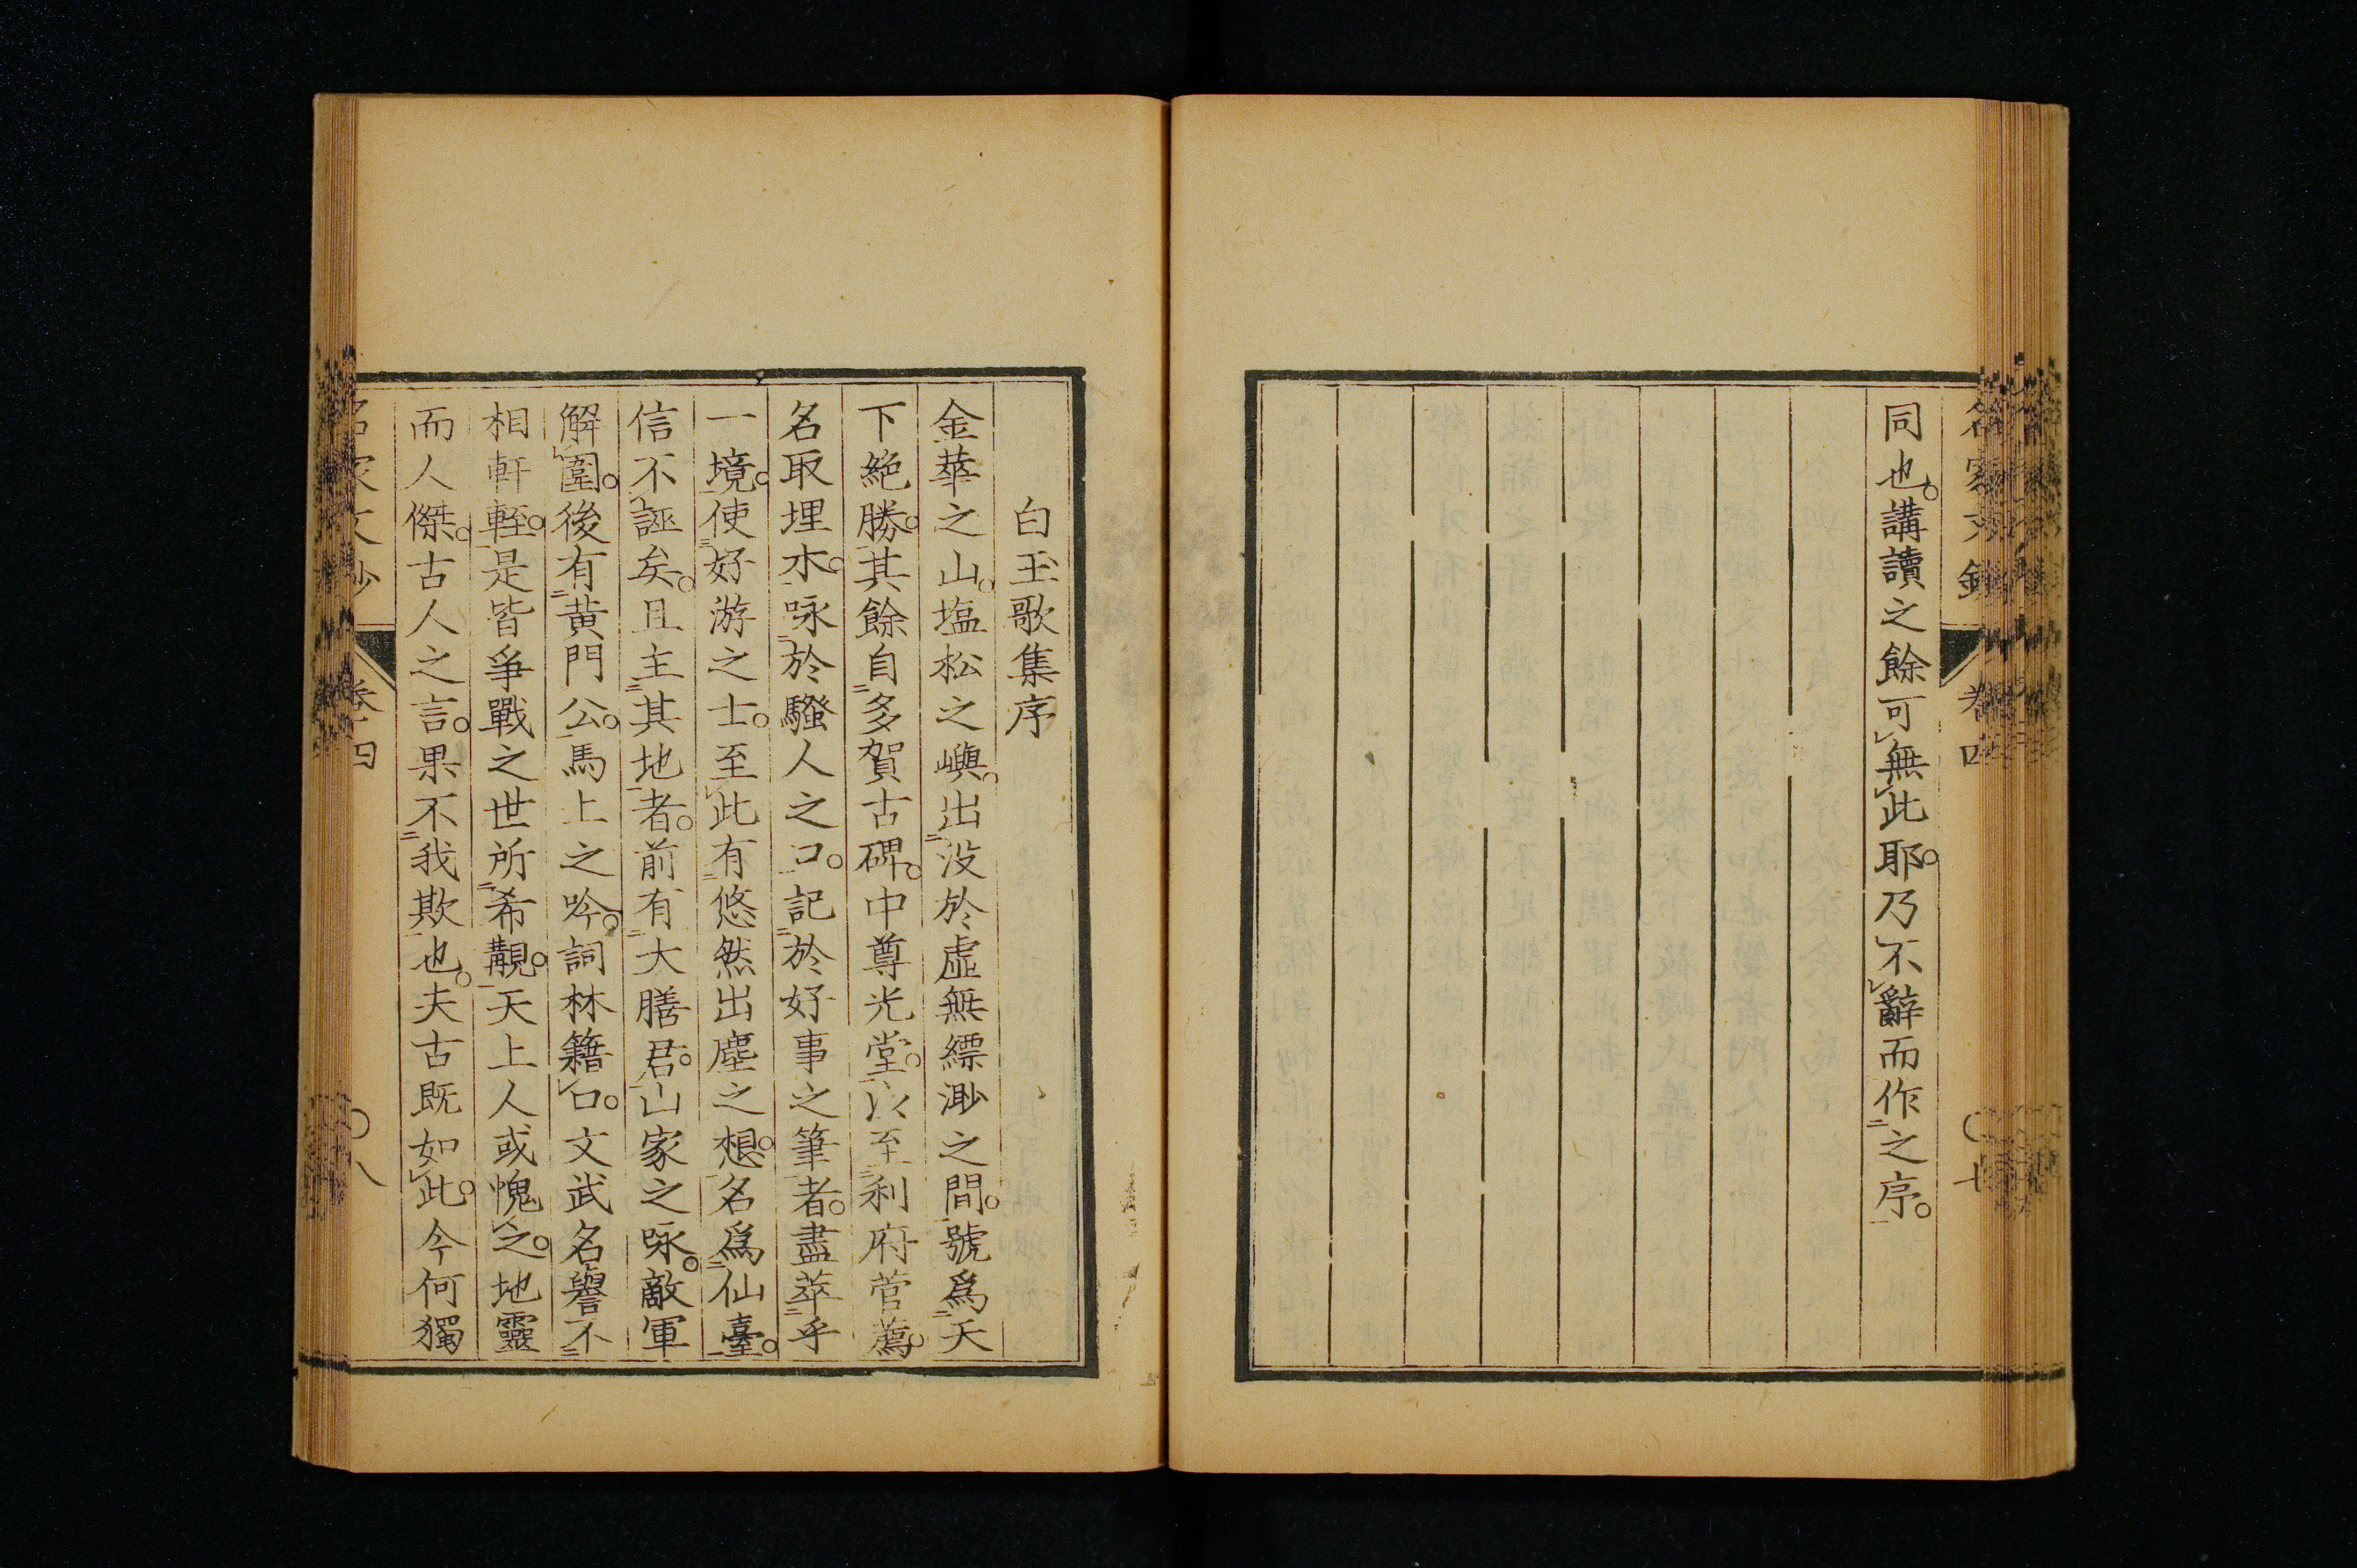 同也。講讀之餘可無此耶。乃不辭而作之序。
白玉歌集序
金華之山。塩松之嶼。出没於虛無縹渺之間。號爲天
下絶勝。其餘自多賀古碑。中尊光堂。以至利府菅薦。
名取埋木。咏於騷人之口。記於好事之筆者。盡萃乎
一境。使好游之士。至此有悠然出塵之想。名爲仙臺。
信不誣矣。且主其地者。前有大膳君。山家之咏。敵軍
解圍。後有黄門公。馬上之吟。詞林籍口。文武名譽不
相軒輊。是皆爭戰之世所希覯。天上人或愧之。地靈
而人傑。古人之言。果不我欺也。夫古既如此。今何獨
名家文鈔
卷四
卷四
八